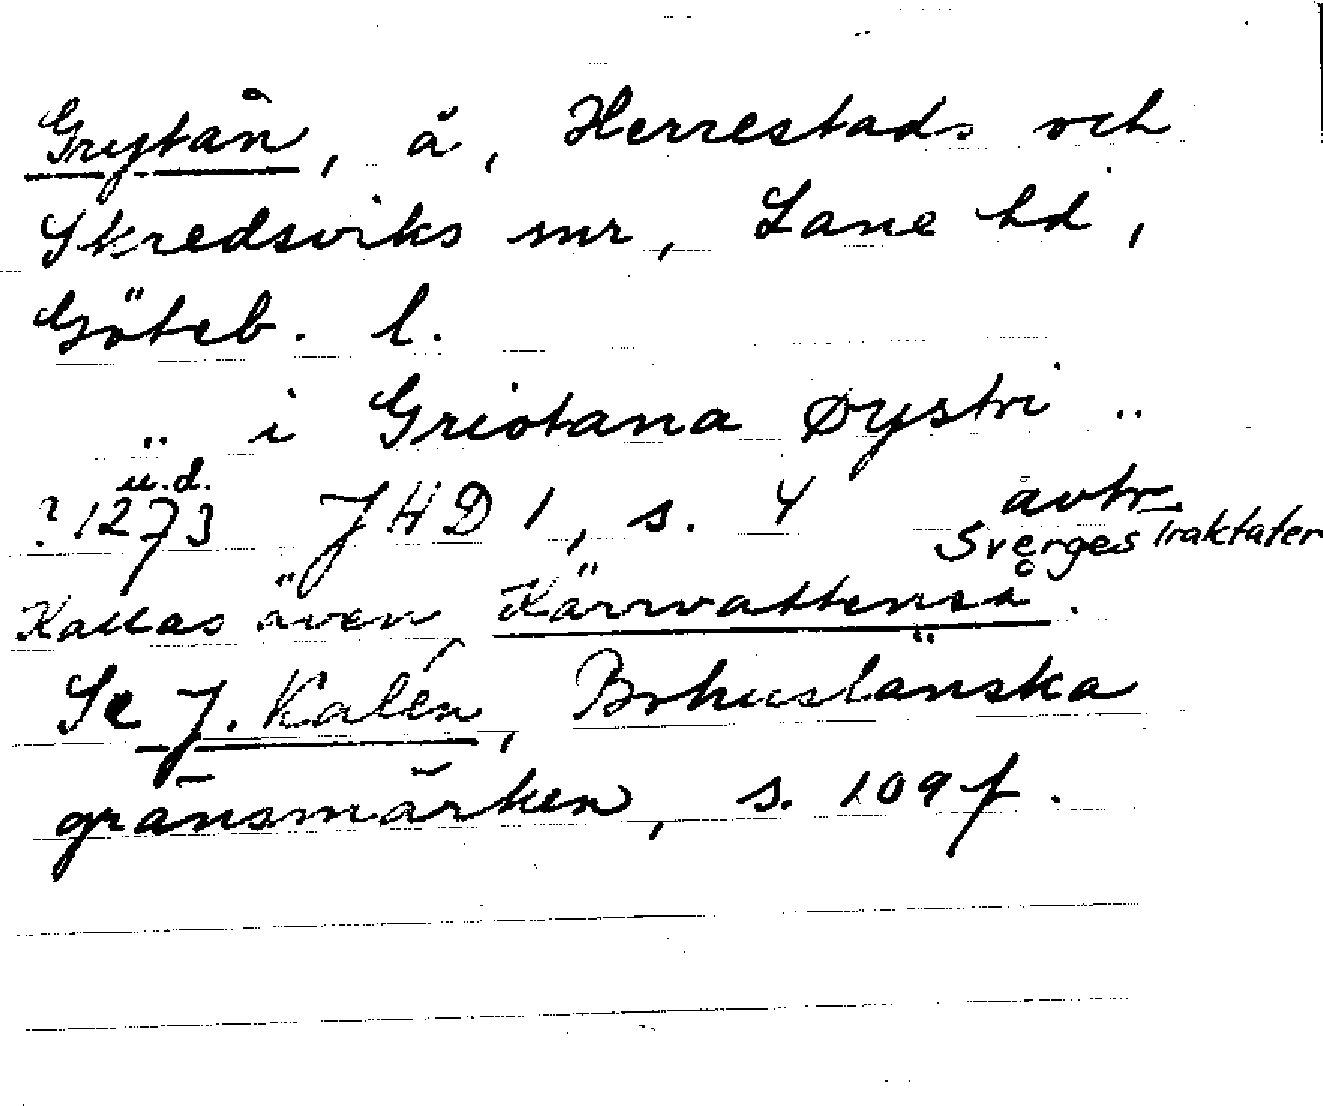 Grytån, å, Herrestads och
Skredsviks snr, Lane hd,
Göteb. l.
„ i Griotana Øystri ..
u.d.
? 1273 JHD 1, s. 4 avtr.
Sverges Traktater
Kallas även Kärrvattenså.
Se J. Kalén, Bohuslänska
gränsmärken, s. 109 f.